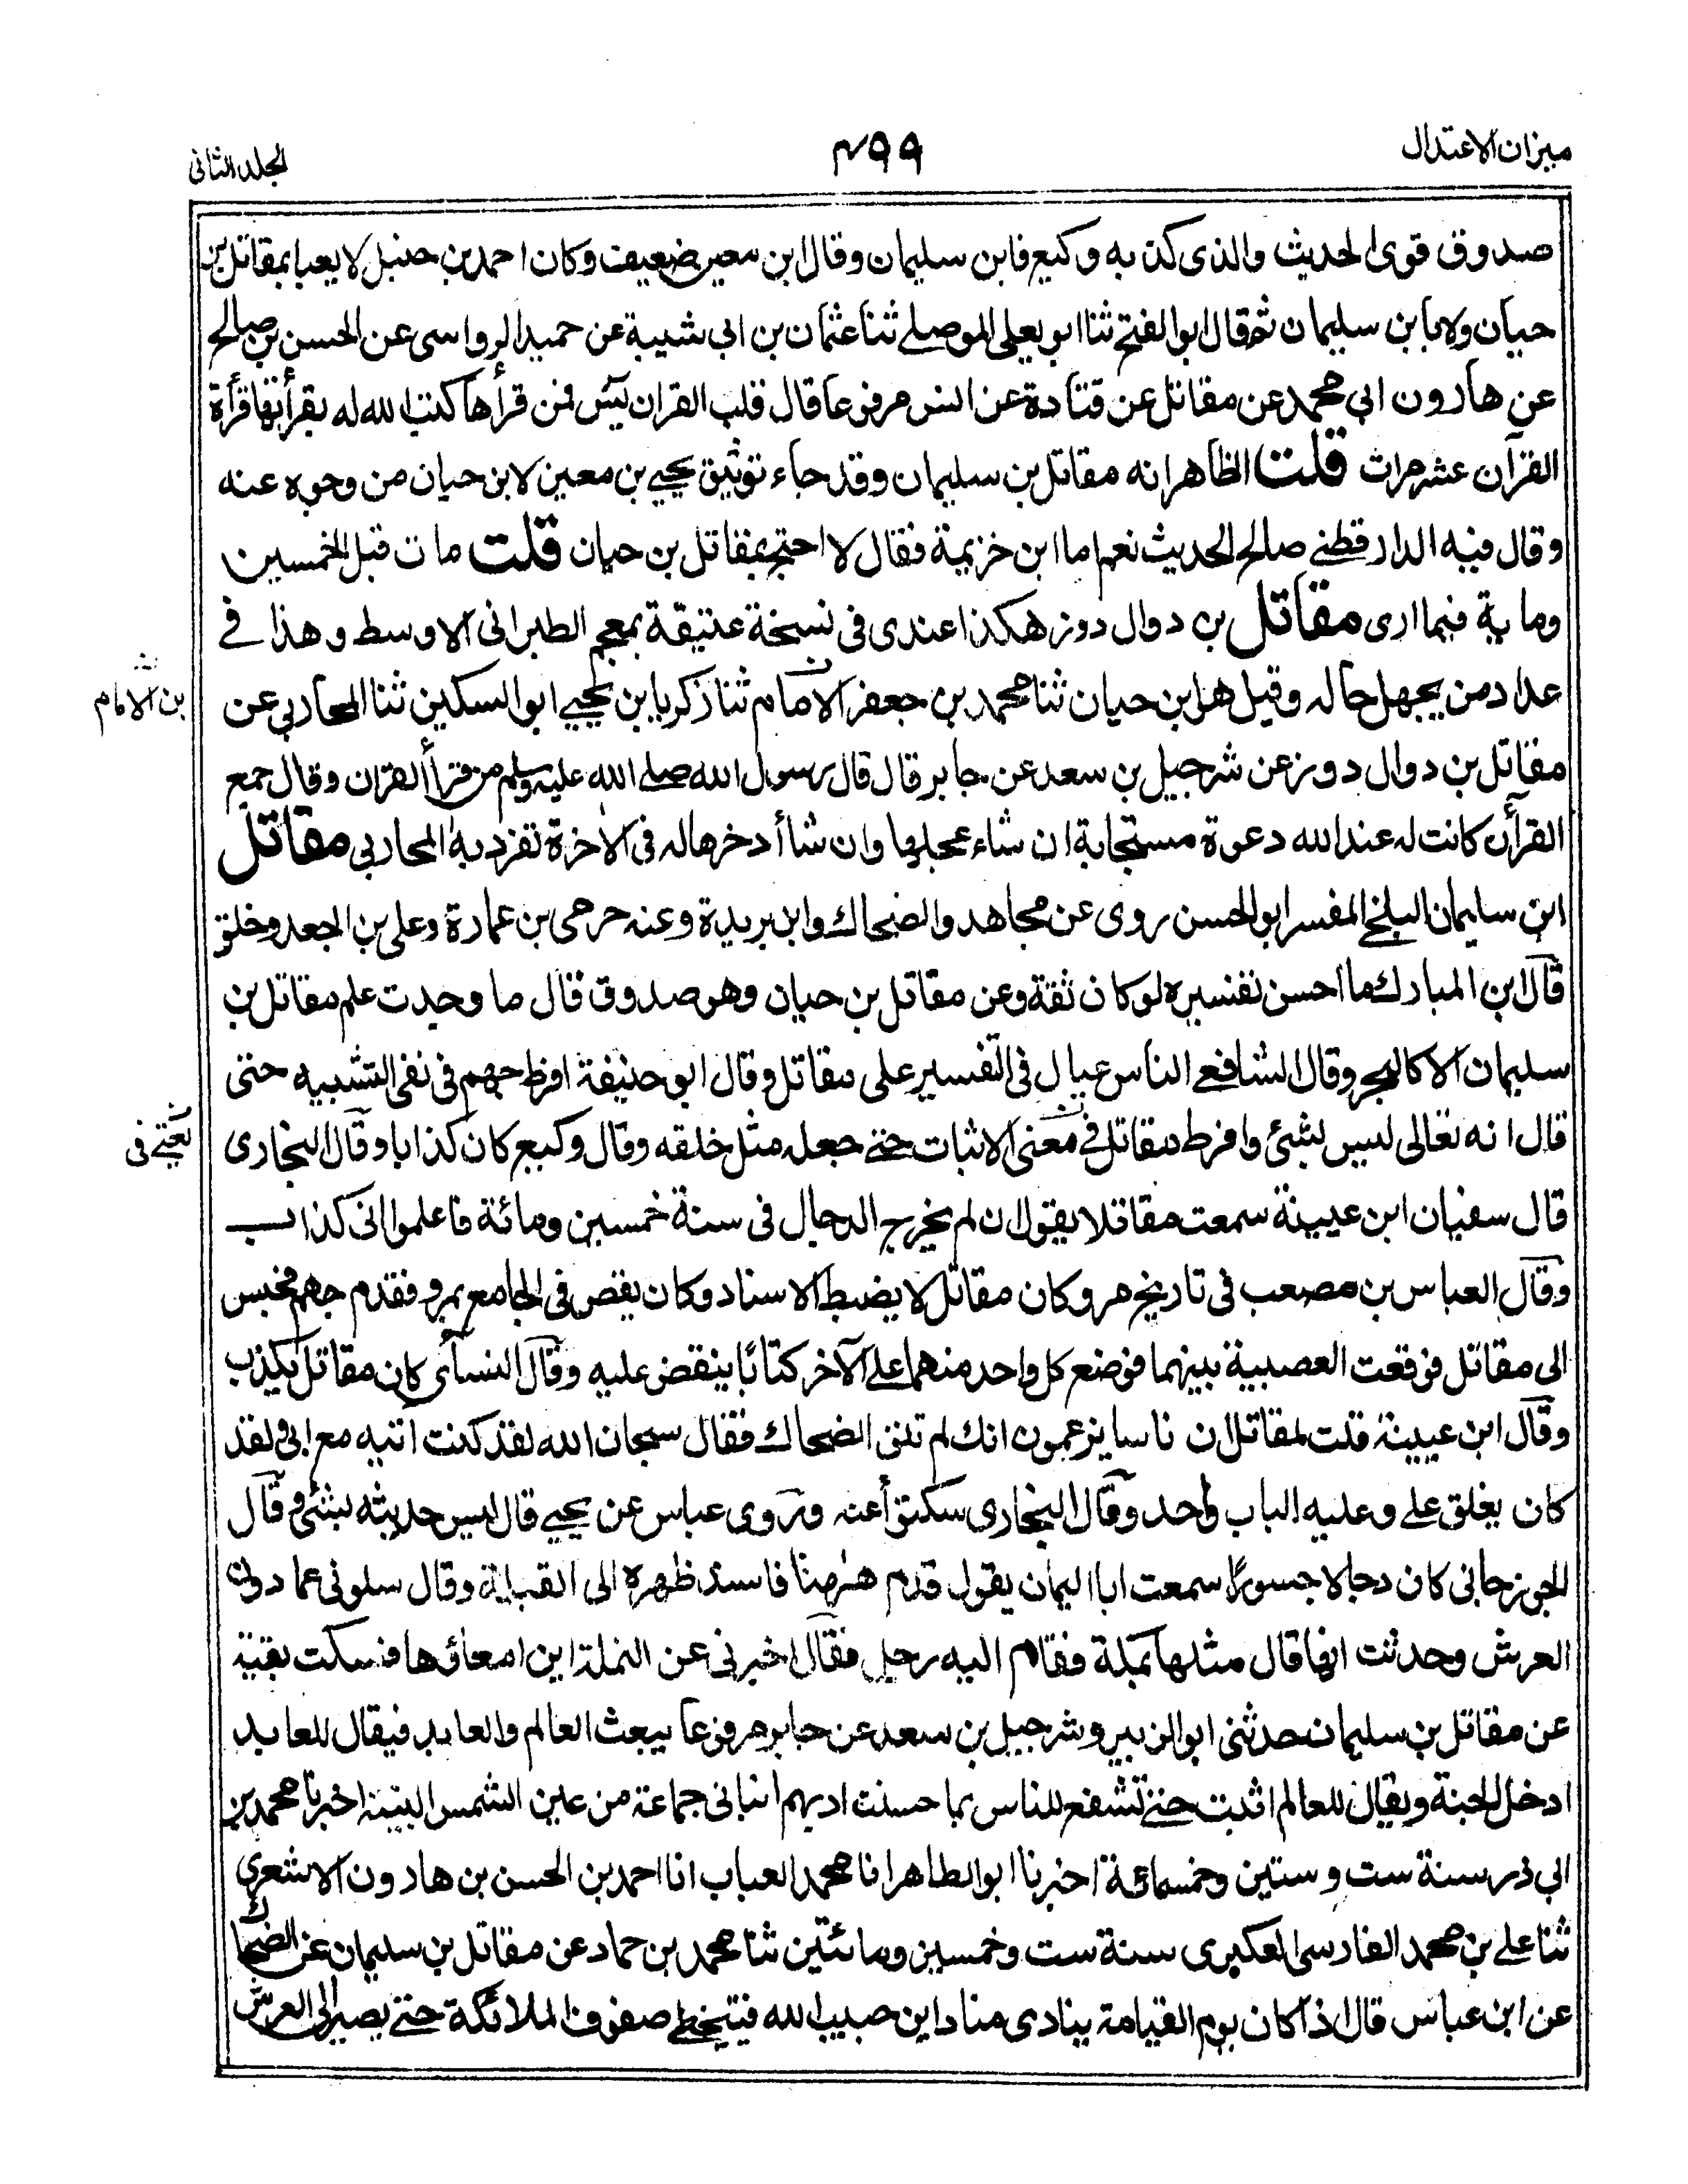 ميزان الاعتدال
٤٩٩
الجلد الثانى
صدوق قوى الحديث والذى كذبه وكيع فابن سليمان وقال ابن معين ضعيف وكان احمد بن حنبل لا يعبا بمقاتل بن
حيان ولا بابن سليمان ثم قال ابو الفتح ثنا ابو يعلى الموصلے ثنا عثمان بن ابى شيبة عن حميد الرواسى عن الحسن بن صالح
عن هارون ابي محمد عن مقاتل عن قتادة عن انس مرفوعا قال قلب القران يٓس فمن قرأها كتب الله له بقرأتها قرأة
القرآن عشر مرات قلت الظاهر انه مقاتل بن سليمان وقد جاء توثيق يحيي بن معين لابن حيان من وجوه عنه
وقال فيه الدارقطنے صالح الحديث نعم اما ابن خزيمة فقال لا احتج بمقاتل بن حيان قلت مات قبل الخمسين
وماية فيما ارى مقاتل بن دوال دوز هكذا عندى فى نسخة عتيقة بمعجم الطبرانى الاوسط وهذا فے
عداد من يجهل حاله وقيل هو ابن حيان ثنا محمد بن جعفر الامام ثنا زكريا بن يحيي ابو السكين ثنا المحاربي عن
بن الامام
مقاتل بن دوال دوز عن شرحبيل بن سعد عن جابر قال قال رسول الله صلے الله عليه وسلم من قرأ القران وقال جمع
القرآن كانت له عند الله دعوة مستجابة ان شاء عجلها وان شاأ دخرها له فى الاخرة تفرد به المحاربي مقاتل
ابن سليمان البلخے المفسر ابو الحسن روى عن مجاهد والضحاك وابن بريدة وعنه حرمى بن عمارة وعلى بن الجعد وخلق
قال ابن المبارك ما احسن تفسيره لو كان ثقة وعن مقاتل بن حيان وهو صدوق قال ما وجدت علم مقاتل بن
سليمان الا كالبحر وقال الشافعے الناس عيال فى التفسير على مقاتل وقال ابو حنيفة افرط جهم فى نفى التشبيه حتى
قال انه تعالى ليس بشئ وافرط مقاتل فے معنى الاثبات حتے جعله مثل خلقه وقال وكيع كان كذابا وقال البخارى
يعنے فى
قال سفيان ابن عيينة سمعت مقاتلا يقول ان لم يخرج الدجال فى سنة خمسين ومائة فاعلموا انى كذاب
وقال العباس بن مصعب فى تاريخ مرو كان مقاتل لا يضبط الاسناد وكان يقص فى الجامع بمرو فقدم جهم فجلس
الى مقاتل فوقعت العصبية بينهما فوضع كل واحد منهما على الآخر كتابًا ينقض عليه وقال النسأى كان مقاتل يكذب
وقال ابن عيينة قلت لمقاتل ان ناسا يزعمون انك لم تلق الضحاك فقال سبحان الله لقد كنت اٰتيه مع ابى ولقد
كان يغلق علے وعليه الباب واحد وقال البخارى سكتوا عنه وروى عباس عن يحيے قال ليس حديثه بشئ وقال
الجوزجانى كان دجالا جسورًا سمعت ابا اليمان يقول قدم هٰرهنا فاسند ظهره الى القبلة وقال سلونى عما دون
العرش وحدثت انه قال مثلها بمكة فقام اليه رجل فقال اخبرنى عن النملة اين امعاؤها فسكت بقية
عن مقاتل بن سليمان حدثنى ابو الزبير وشرحبيل بن سعد عن جابر مرفوعا يبعث العالم والعابد فيقال للعابد
ادخل الجنة ويقال للعالم اثبت حتے تشفع للناس بما حسنت ادبهم انبانى جماعة من عين الشمس البتينة اخبرنا محمد بن
ابي ذر سنة ست وستين وخمسمائة اخبرنا ابو الطاهر انا محمد العباب انا احمد بن الحسن بن هارون الاشعرى
ثنا علے بن محمد الفارسى العكبرى سنة ست وخمسين ومائتين ثنا محمد بن حماد عن مقاتل بن سليمان عن الضحاك
عن ابن عباس قال اذا كان يوم القيامة ينادى مناد اين حبيب الله فيتخطے صفوف الملائكة حتے يصير الى العرش